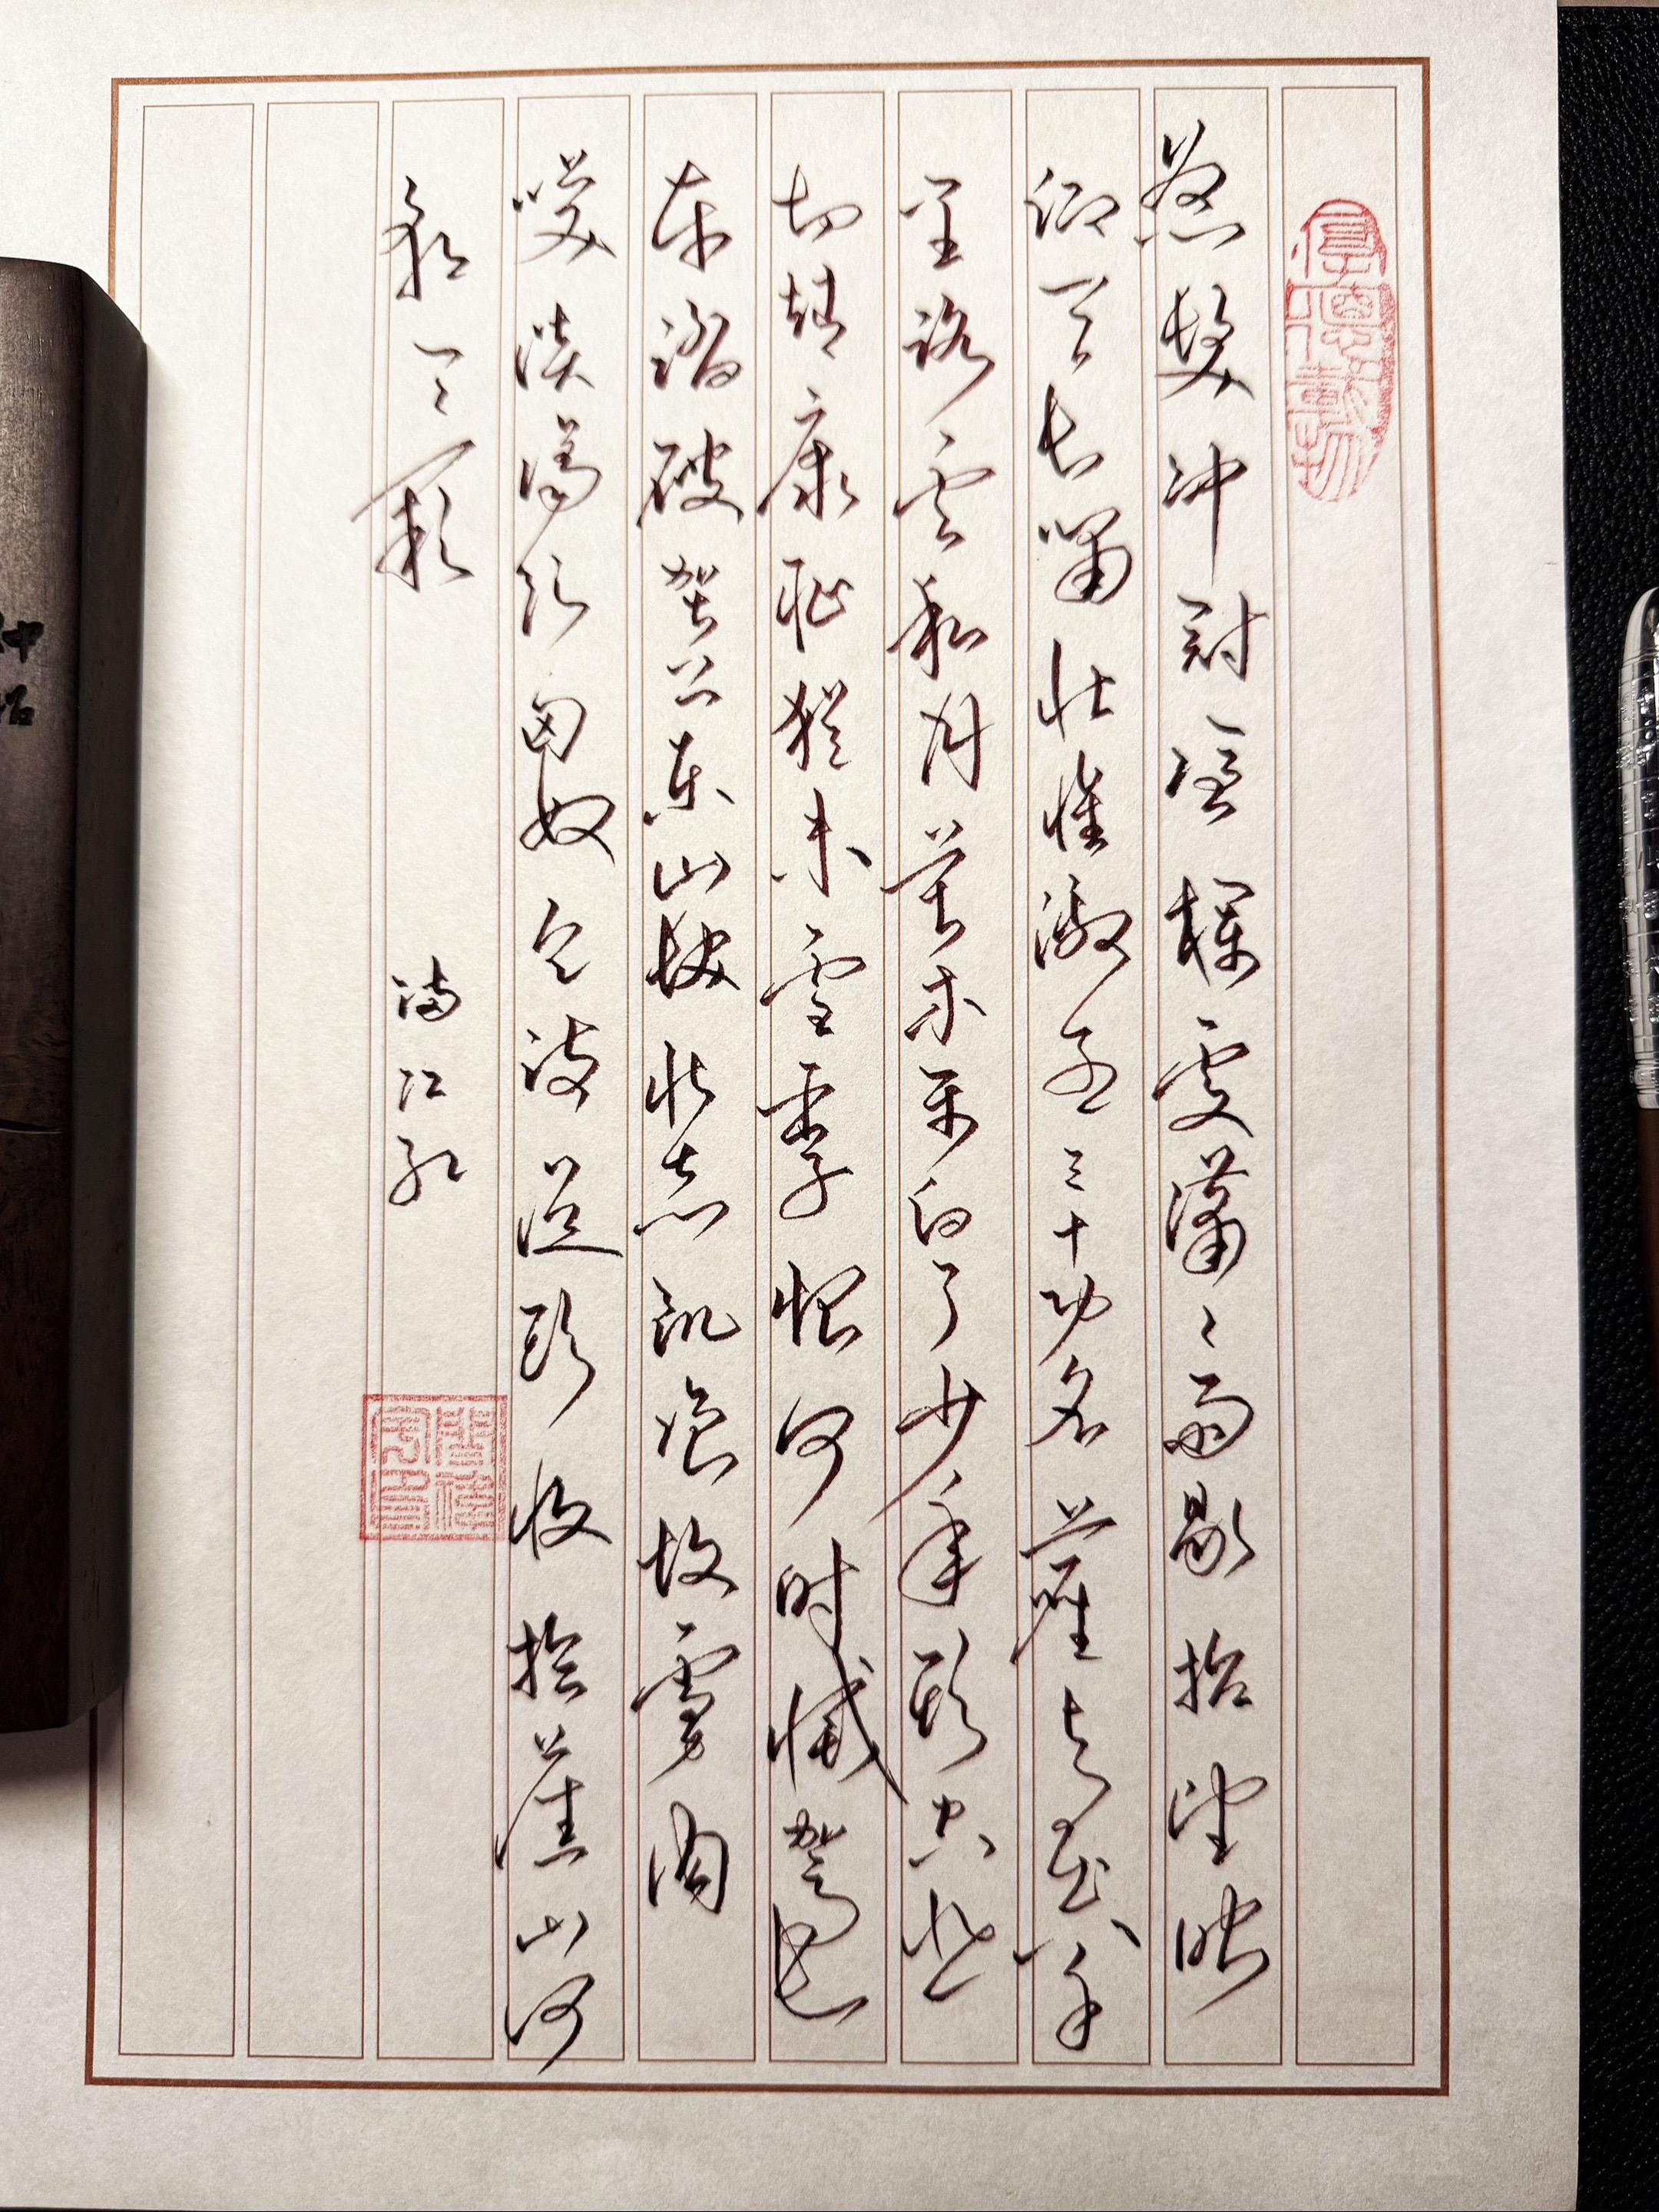 怒髮冲冠凭欄處瀟々雨歇抬望眼
仰天长啸壮懷激烈三十功名塵与土八千
里路云和月莫等闲白了少年头空悲
切靖康耻猶未雪臣子恨何时滅駕长
车踏破贺蘭山缺壮志飢餐胡虜肉
笑谈渴饮匈奴血待従头收拾舊山河
朝天阙 满江红